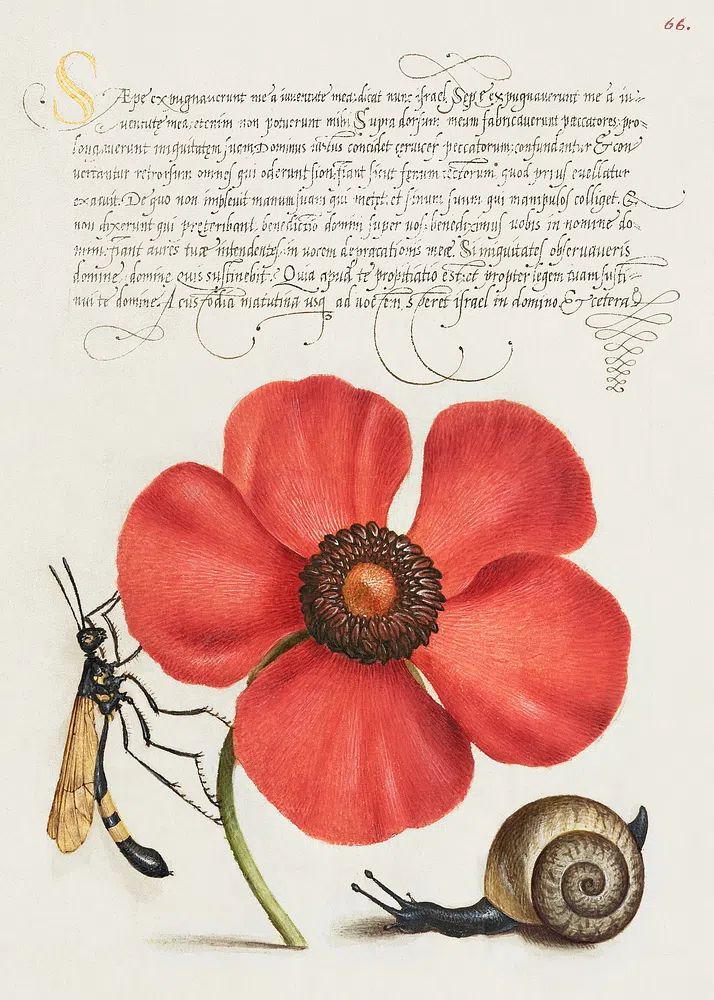 66.
Sæpe expugnaverunt me a iuventute mea: dicat nunc israel. Sepe expugnaverunt me a iu=
ventute mea, etenim non potuerunt mihi. Supra dorsum meum fabricaverunt peccatores: pro=
longaverunt iniquitatem suam. Dominus iustus concidet cervices peccatorum: confundantur & con
vertantur retrorsum omnes qui oderunt sion, fiant sicut fenum tectorum, quod prius evellatur
exaruit. De quo non implevit manum suam qui metet: et sinum suum qui manipulos colliget. Et
non dixerunt qui preteribant, benedictio domini super vos: benediximus vobis in nomine do=
mini. fiant aures tuæ intendentes, in vocem depræcationis meæ. Si iniquitates observaveris
domine, domine quis sustinebit. Quia apud te propitiatio est: et propter legem tuam susti=
nui te domine. A custodia matutina usq ad noctem, speret israel in domino. & cetera